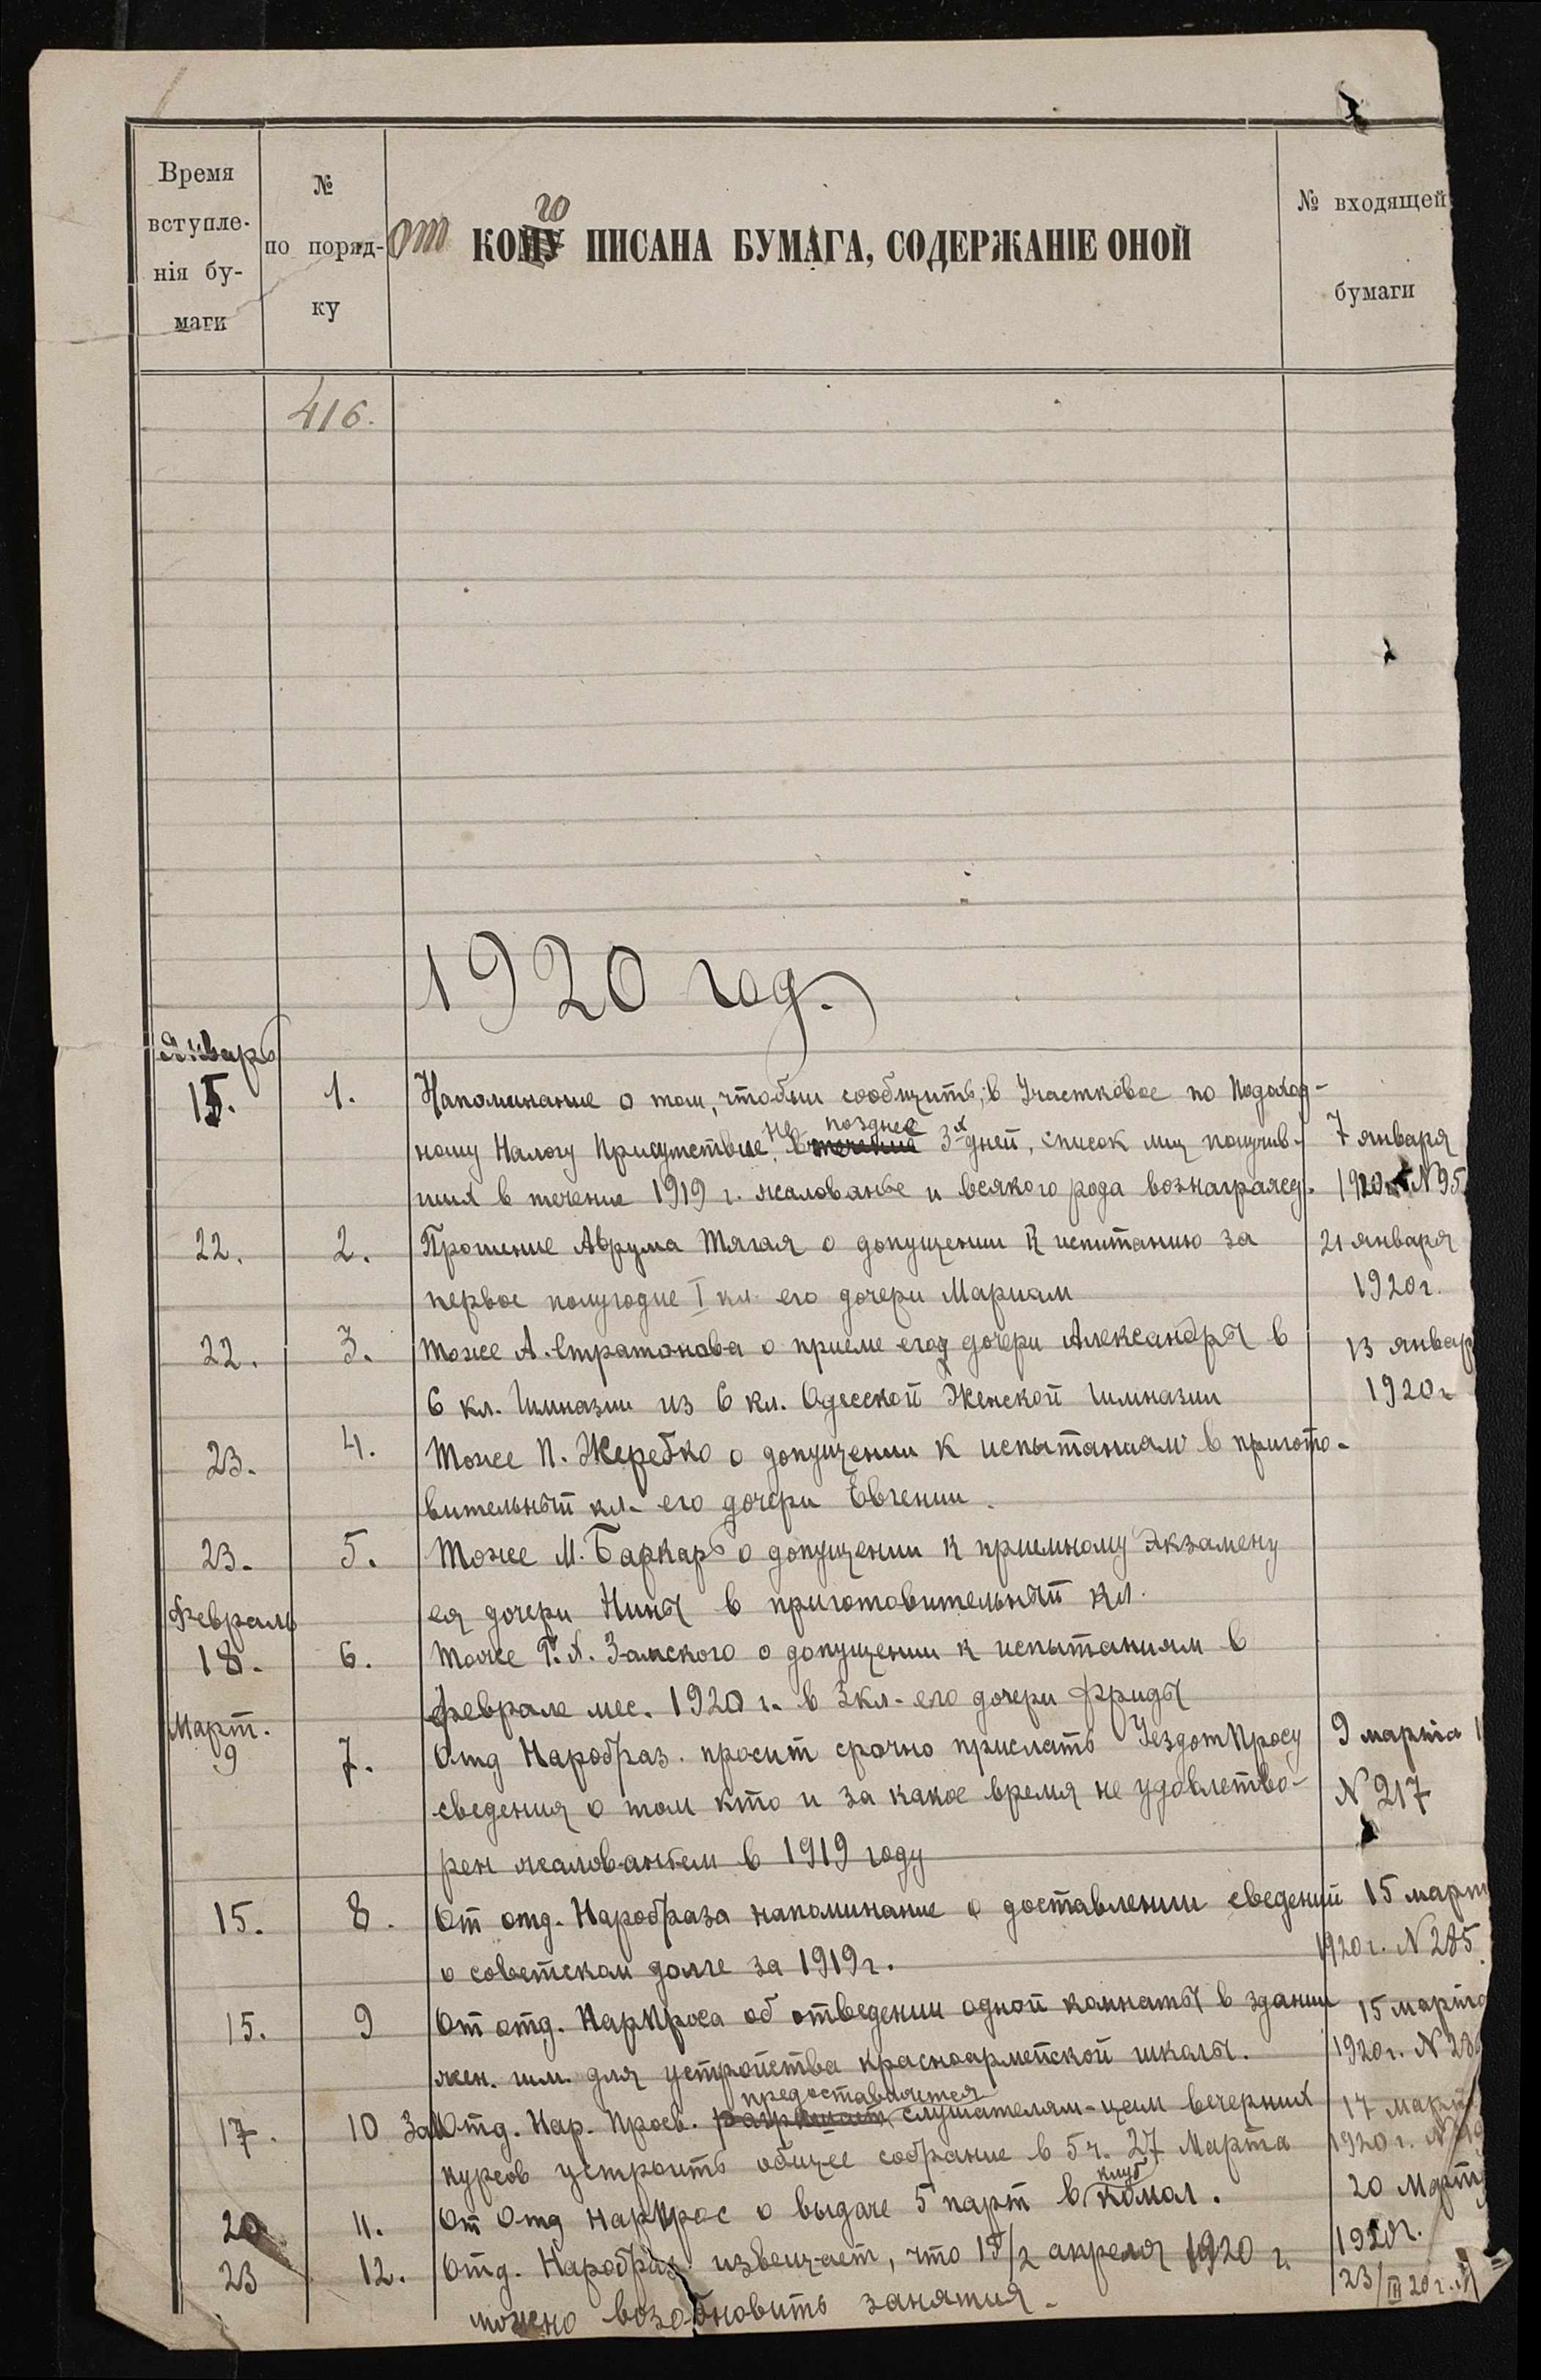 Время вступле-
нія бу-
маги
№
по поряд-
ку
от КОМУ го ПИСАНА БУМАГА, СОДЕРЖАНІЕ ОНОЙ
№ входящей
бумаги
416.
1920 год.
Январь
15. 1. Напоминание о том, чтобы сообщить, в Участковое по Подоход-
ному Налогу Присутствие, не позднее в течение 3х дней, список лиц получив- 7 января
ших в течение 1919 г. жалованье и всякого рода вознагражд. 1920 г. N 95
22. 2. Прошение Аврума Тягая о допущении к испытанию за 21 января
первое полугодие I кл. его дочери Мариам 1920 г.
22. 3. Тоже А. Стратонова о приеме его дочери Александры в 13 январ
6 кл. гимназии из 6 кл. Одесской Женской гимназии 1920 г
23. 4. Тоже П. Жеребко о допущении к испытаниям в пригото-
вительный кл. его дочери Евгении.
23. 5. Тоже М. Баркарь о допущении к приемному экзамену
ея дочери Нины в приготовительный кл.
Февраль
18. 6. Тоже Замского о допущении к испытаниям в
феврале мес. 1920 г. в 3 кл. его дочери Фриды
Март.
9 7. Отд Наробраз. просит срочно прислать УездотПросу 9 марта 1
сведения о том кто и за какое время не удовлетво- N 217
рен жалованьем в 1919 году
15. 8. От отд. Наробраза напоминание о доставлении сведений 15 март
о советском долге за 1919 г. 1920 г. N 285
15. 9 От отд. НарПроса об отведении одной комнаты в здании 15 марта
жен. гим. для устройства красноармейской школы. 1920 г. N 28
предоставляется
17. 10 Зав Отд. Нар. Просв. разрешает слушателям-цам вечерних 17 март
курсов устроить общее собрание в 5 ч. 27 Марта 1920 г. N
клуб
20 11. От Отд НарПрос о выдаче 5 парт в Комол. 20 Марта
1920 г.
23 12. Отд. Наробраз. извещает, что 15/2 апреля 1920 г. 23/III 20 г. N
можно возобновить занятия.